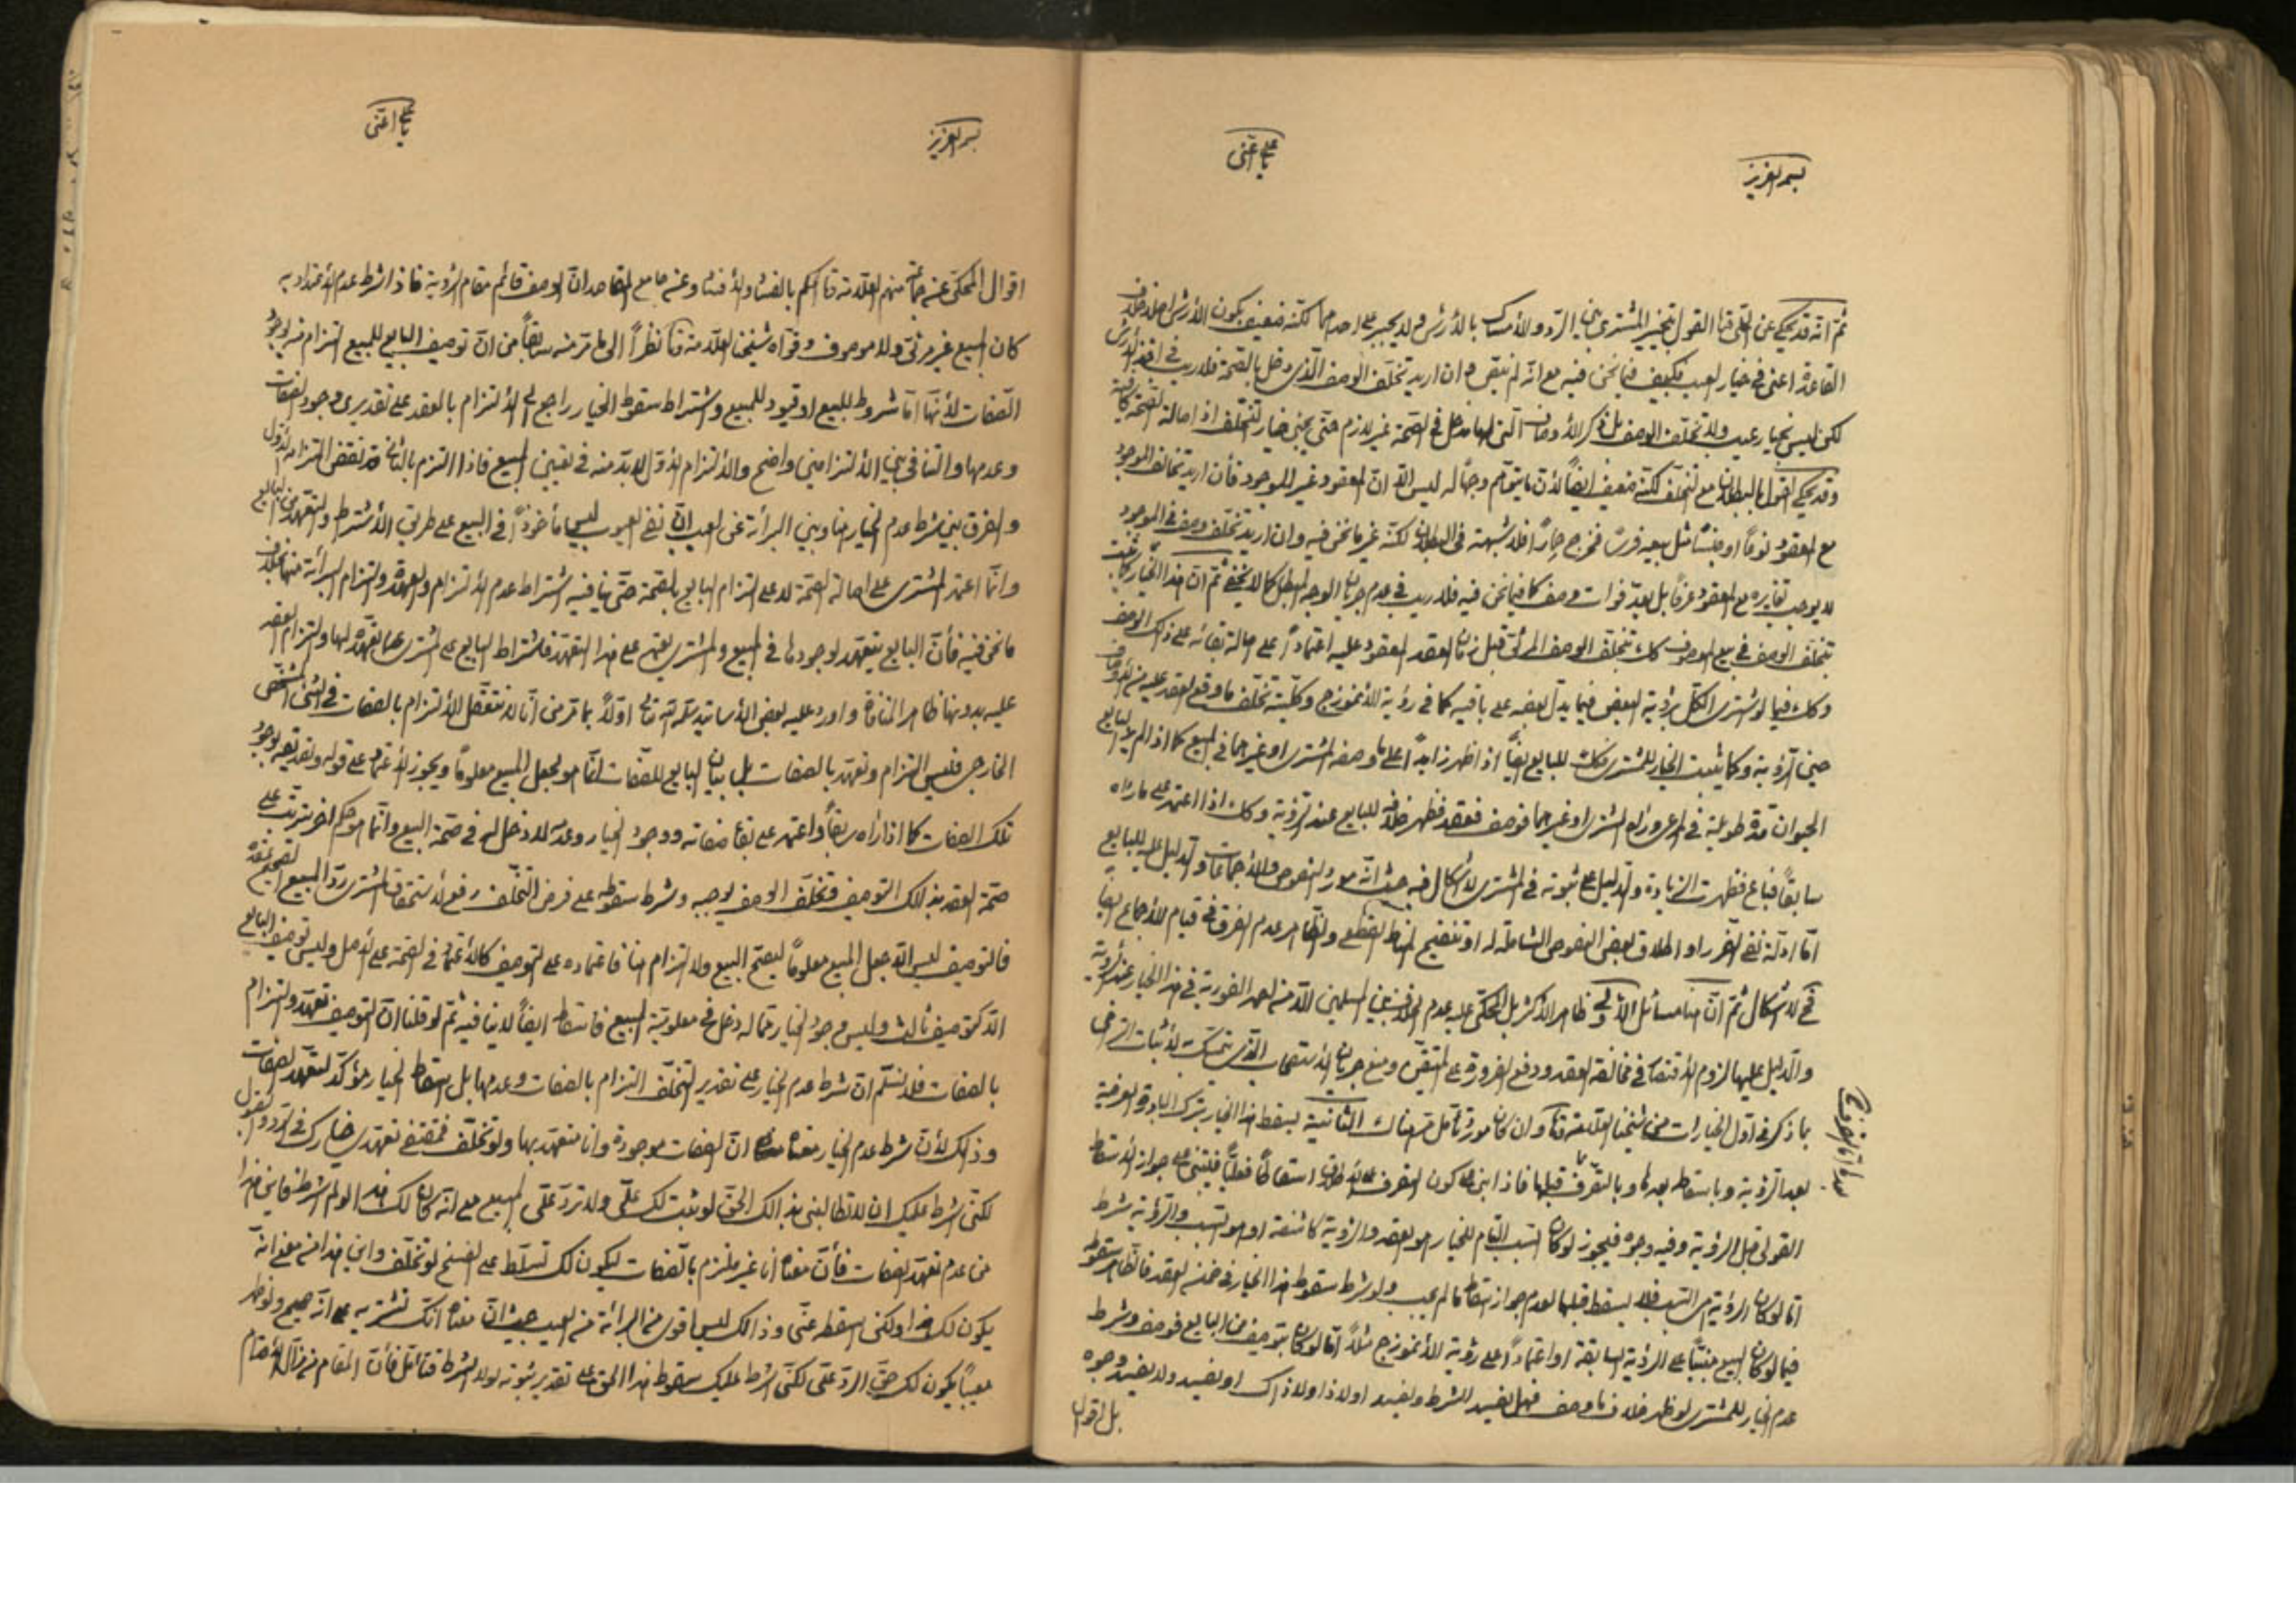 بسم العزيز
يا علي اغثني
ثم انه قد يحكى عن الحلي القول بتخيير المشتري بين الرد والامساك بالارش ولا يجبر على احدهما لكنه ضعيف بكون الارش على خلاف
القاعدة اعني في خيار العيب فكيف فيما نحن فيه مع انه لم ينقص وان اريد تخلف الوصف الذي دخل بالصحة فلا ريب في اخذ الارش
لكن ليس بخيار عيب ولا تخلف الوصف بل ذكر الاوصاف التي لها مدخل في الصحة غير لازم حتى يجئ خيار التخلف اذ اصالة الصحة كافية
وقد يحكى القول بالبطلان مع التخلف لكنه ضعيف ايضاً لان ما يتوهم وجهاً له ليس الا ان المعقود غير الموجود فان اريد تخالف الموجود
مع المعقود نوعاً او جنساً مثل بيعه فرساً فخرج حماراً فلا شبهة في البطلان لكنه غير ما نحن فيه وان اريد تخلف وصف في الموجود
لا يوجب تغايره مع المعقود عرفاً بل يعد فوات وصف كما فيما نحن فيه فلا ريب في عدم جريان الوجه المبطل كما لا يخفى ثم ان هذا الخيار كما يثبت
بتخلف الوصف في بيع الموصوف كك بتخلف الوصف المرئي قبل زمان العقد المعقود عليه اعتماداً على اصالة بقائه على ذلك الوصف
وكك فيما لو اشترى الكل برؤية البعض فيما يدل بعضه على باقيه كما في رؤية الانموزج وكلية تخلف ما وقع العقد عليه من الاوصاف
حين الرؤية وكما يثبت الخيار للمشتري فكك للبايع ايضاً اذا ظهر زايداً على ما وصفه المشتري او غيرهما في المبيع كما اذا لم ير البايع
الحيوان مدة طويلة في المرعى ورآه المشتري او غيرهما فوصف فعقد فظهر خلافه للبايع عند الرؤية وكك اذا اعتمد على ما رآه
سابقاً فباع فظهرت الزيادة والدليل على ثبوته في المشتري لا اشكال فيه حيث انه مورد النصوص والاجماعات والدليل عليه للبايع
اما ادلة نفي الضرر او اطلاق بعض النصوص الشاملة له او تنقيح المناط القطعي والظاهر عدم الفرق في قيام الاجماع ايضاً
فح لا اشكال ثم ان هنا مسائل الاولى ظاهر الاكثر بل المحكي عليه عدم الخلاف بين المسلمين الا من احمد الفورية في هذا الخيار عند الرؤية
والدليل عليها لزوم الاقتصار في مخالفة العقد ودفع الضرورة على المتيقن ومنع جريان الاستصحاب الذي يتمسك به لاثبات التراخي
بما ذكر في اول الخيارات من شيخنا العلامة وان كان مورد تأمل هناك الثانية يسقط هذا الخيار بترك المبادرة العرفية
بعد الرؤية وباسقاطه بعدها وبالتصرف بعدها وقبلها فاذا بنى على كون التصرف اسقاطاً فعلياً فيبتني على جواز الاسقاط
القولي قبل الرؤية وفيه وجوه فيجوز لو كان السبب التام للخيار هو العقد والرؤية كاشفة او هو السبب والرؤية شرط
اما لو كان الرؤية هي السبب فلا يسقط قبلها لعدم جواز اسقاط ما لم يجب ولو شرط سقوط هذا الخيار في ضمن العقد فالظاهر سقوطه
فيما لو كان البيع مبنياً على الرؤية السابقة او اعتماداً على رؤية الانموزج مثلاً اما لو كان بتوصيف من البايع فوصف وشرط
عدم الخيار للمشتري لو ظهر خلاف ما وصف فهل يفسد الشرط ويفسد او لا ذا ولا ذاك او يفسد ولا يفسد وجوه
بل اقوال
بسم العزيز
يا علي اغثني
اقوال المحكي عن جماعة منهم العلامة الحكم بالفساد والافساد وعن جامع المقاصد ان الوصف قائم مقام الرؤية فاذا شرط عدم الاعتداد به
كان المبيع غير مرئي ولا موصوف وقواه شيخنا العلامة نظراً الى ما مر منه سابقاً من ان توصيف البايع للمبيع التزام منه لوجود
الصفات لانها اما شروط للبيع او قيود للمبيع واشتراط سقوط الخيار راجع الى الالتزام بالعقد على تقديري وجود الصفات
وعدمها والتنافي بين الالتزامين واضح والالتزام الاول لا بد منه في تعيين المبيع فاذا التزم بالثاني فقد نقض التزام الاول
والفرق بين شرط عدم الخيار هنا وبين البرائة عن العيب ان نفي العيوب ليس مأخوذاً في البيع على طريق الاشتراط والتعهد من البايع
وانما اعتمد المشتري على اصالة الصحة لا على التزام البايع بالصحة حتى ينافيه اشتراط عدم الالتزام والعهدة والتزام البرائة منها بخلاف
ما نحن فيه فان البايع يتعهد لوجودها في المبيع والمشتري يعتمد على هذا التعهد فاشتراط البايع على المشتري عدم تعهده لها والتزام العقد
عليه بدونها ظاهر المنافاة واورد عليه بعض الاساتيد سلمه الله اولاً بما مر من انا لا نتعقل الالتزام بالصفات في الشئ المشخص
الخارجي فليس التزام وتعهد بالصفات بل بيان البايع للصفات انما هو لجعل المبيع معلوماً ويجوز الاعتماد على قوله وتصديقه لوجود
تلك الصفات كما اذا رآه سابقاً واعتمد على بقاء صفاته ووجود الخيار وعدمه لا دخل له في صحة البيع وانما هو حكم اخر يترتب على
صحة العقد بذلك التوصيف وتخلف الوصف يوجبه وشرط سقوطه على فرض التخلف رفع لاستحقاق المشتري رد المبيع الصحيح عقده
فالتوصيف ليس الا جعل المبيع معلوماً ليصح البيع ولا التزام هنا فاعتماده على التوصيف كالاعتماد في الصحة على الاصل وليس توصيف البايع
الا كتوصيف ثالث وليس وجود الخيار مما له دخل في معلومية المبيع فاسقاطه ايضاً لا ينافيه ثم لو قلنا ان التوصيف تعهد والتزام
بالصفات فلا نسلم ان شرط عدم الخيار على تقدير التخلف التزام بالصفات وعدمها بل اسقاط الخيار مؤكد لتعهد الصفات
وذلك لان شرط عدم الخيار معناه ان الصفات موجودة وانا متعهد بها ولو تخلف فمقتضى تعهدي خيارك في الرد والقبول
لكني اشرط عليك ان لا تطالبني بذالك الحق لو ثبت لك علي ولا ترد علي المبيع مع انه كان لك هذا لو لم اشرط فاين هذا
من عدم تعهد الصفات فان معناه انا غير ملتزم بالصفات ليكون لك تسلط على الفسخ لو تخلف واين هذا من معنى انه
يكون لك هذا ولكن اسقطه عني وذالك ليس اقوى من البرائة من العيب حيث ان معناه انك تشتريه على انه صحيح ولو ظهر
معيباً يكون لك حق الرد علي لكني اشرط عليك سقوط هذا الحق على تقدير ثبوته لولا الشرط فتأمل فان المقام من مزال الاقدام